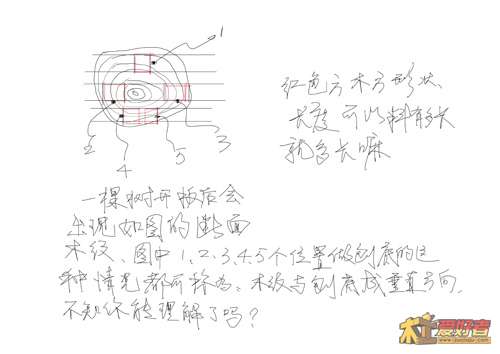 1
2
3
4
5
红色方木方形状,
长度可以料有多长
就多长嘛
一棵树开板后会
出现如图的断面
木纹、图中1、2、3、4、5个位置做刨底的这
种情况都可称为:木纹与刨底成垂直方向,
不知你能理解了吗?
木工爱好者
www.zuojiaju.com